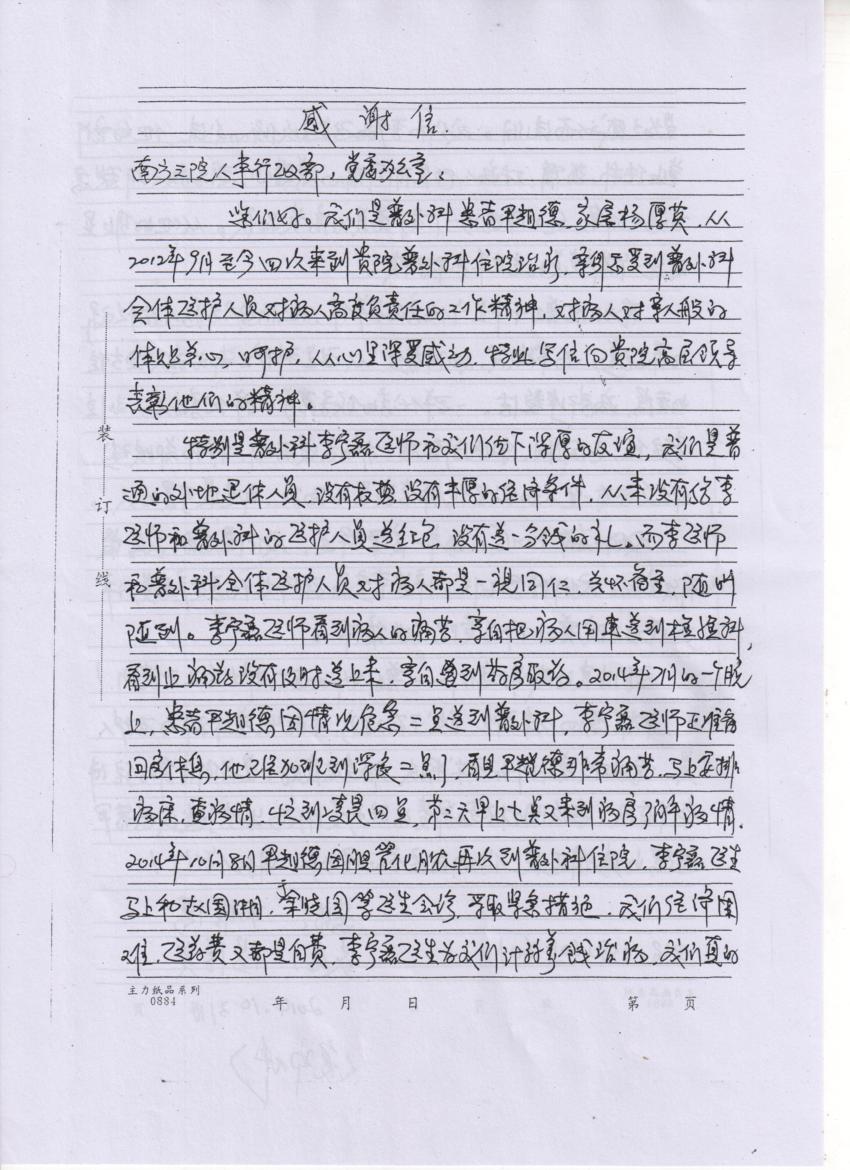 感谢信.
南方三院人事行政部，党委办公室：
您们好。我们是普外科患者覃超德、家属杨厚英，从
2012年9月至今四次来到贵院普外科住院治疗，亲身感受到普外科
全体医护人员对病人高度负责任的工作精神，对病人对亲人般的
体贴关心，呵护，从心里深受感动，特此写信向贵院高层领导
表彰他们的精神。
特别是普外科李宁磊医师和我们结下深厚的友谊，我们是普
通的外地退休人员，没有权势，没有丰厚的经济条件，从来没有给李
医师和普外科的医护人员送红包，没有送一分钱的礼。而李医师
和普外科全体医护人员对病人都是一视同仁，关怀备至，随叫
随到。李宁磊医师看到病人的痛苦，亲自把病人用车送到检验科，
看到止痛药没有及时送上来，亲自跑到药房取药。2014年7月的一个晚
上，患者覃超德因情况危急二点送到普外科，李宁磊医师正准备
回房休息，他已经加班到深夜二点了，看见覃超德非常痛苦，马上安排
病床，查病情，忙到凌晨四点，第二天早上七点又来到病房了解病情.
2014年10月8日覃超德因胆管化脓再次到普外科住院，李宁磊医生
马上和赵国 ，余晓 等医生会诊，采取紧急措施，我们经济困
难，医药费又都是自费，李宁磊医生为我们计算着钱治病，我们真的
装
订
线
主力纸品系列
0884 年 月 日 第 页